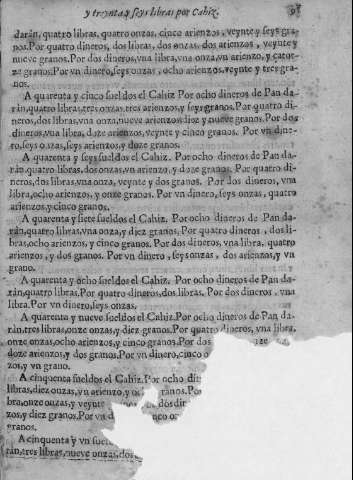 y treynta y seys libras por Cahiz. 9
darán, quatro libras, quatro onzas, cinco arienzos, veynte y seys gra-
nos. Por quatro dineros, dos libras, dos onzas, dos arienzos, veynte y
nueve granos. Por dos dineros, vna libra, vna onza, vn arienzo, y cator-
ze granos. Por vn dinero, seys onzas, ocho arienzos, veynte y tres gra-
nos.
A quarenta y cinco sueldos el Cahiz Por ocho dineros de Pan da-
rán, quatro libras, tres onzas, tres arienzos, y seys granos. Por quatro di-
neros, dos libras, vna onza, nueve arienzos, diez y nueve granos. Por dos
dineros, vna libra, doze arienzos, veynte y cinco granos. Por vn dine-
ro, seys onzas, seys arienzos, y doze granos.
A quarenta y seys sueldos el Cahiz. Por ocho dineros de Pan da-
rán, quatro libras, dos onzas, vn arienzo, y doze granos. Por quatro di-
neros, dos libras, vna onza, veynte y dos granos. Por dos dineros, vna
libra, ocho arienzos, y onze granos. Por vn dinero, seys onzas, quatro
arienzos, y cinco granos.
A quarenta y siete sueldos el Cahiz. Por ocho dineros de Pan da-
rán, quatro libras, vna onza, y diez granos. Por quatro dineros, dos li-
bras, ocho arienzos, y cinco granos. Por dos dineros, vna libra, quatro
arienzos, y dos granos. Por vn dinero, seys onzas, dos arienzos, y vn
grano.
A quarenta y ocho sueldos el Cahiz. Por ocho dineros de Pan da-
rán, quatro libras. Por quatro dineros, dos libras. Por dos dineros, vna
libra. Por vn dinero, seys onzas.
A quarenta y nueve sueldos el Cahiz. Por ocho dineros de Pan da-
rán, tres libras, onze onzas, y diez granos. Por quatro dineros, vna libra,
onze onzas, ocho arienzos, y cinco granos. Por dos
doze arienzos, y dos granos. Por vn dinero, cinco o
zos, y vn grano.
A cinquenta sueldos el Cahiz. Por ocho din
libras, diez onzas, vn arienzo, y oc ranos. Por
bra, onze onzas, y veynte dos din
zos, y diez granos. Por vn d nco on
granos.
A cinquenta y vn sueldos
rán, tres libras, nueve onzas, dos